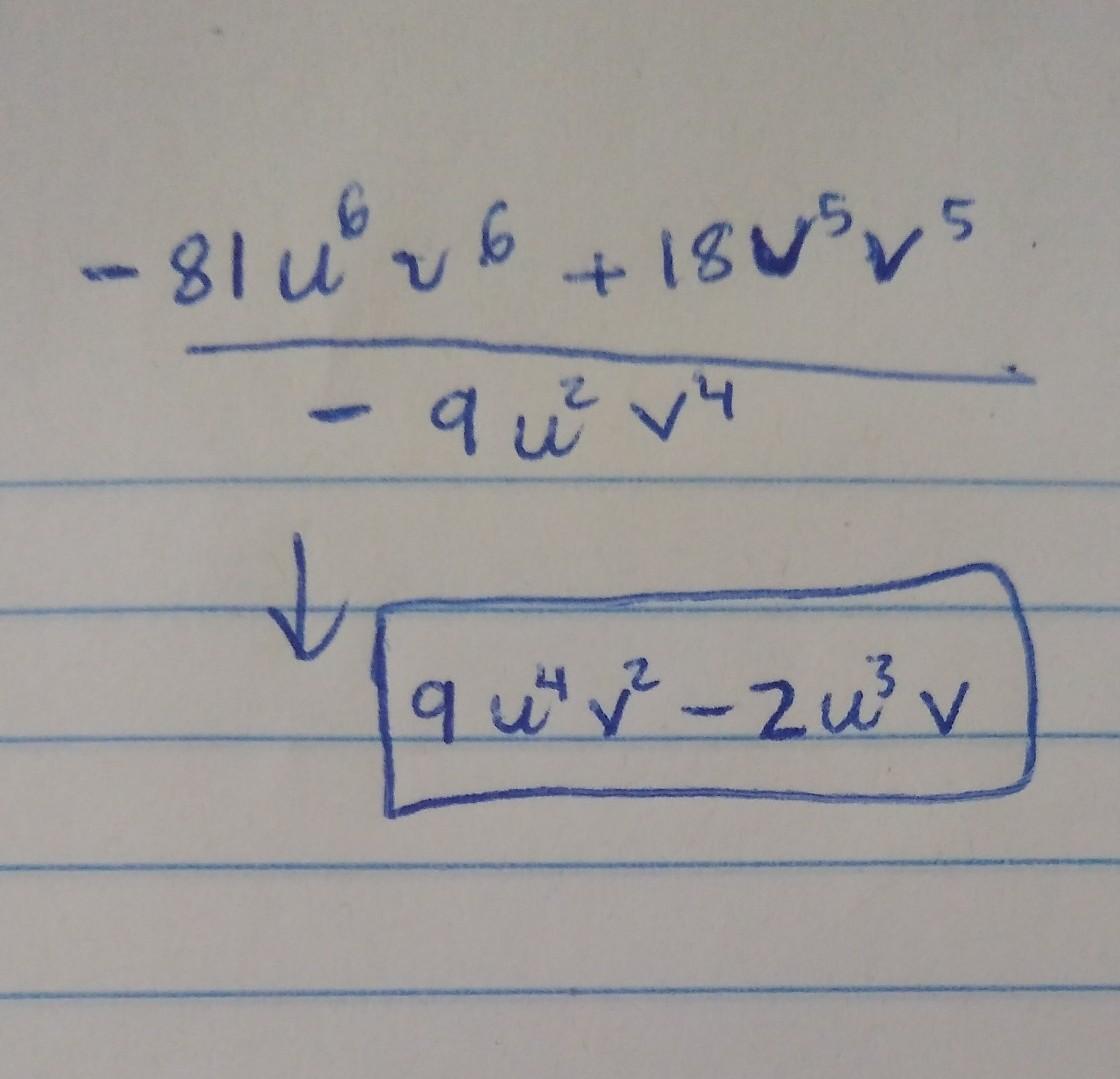 -81u⁶v⁶ + 18v⁵v⁵
-9u²v⁴
↓ 9u⁴v² - 2u³v